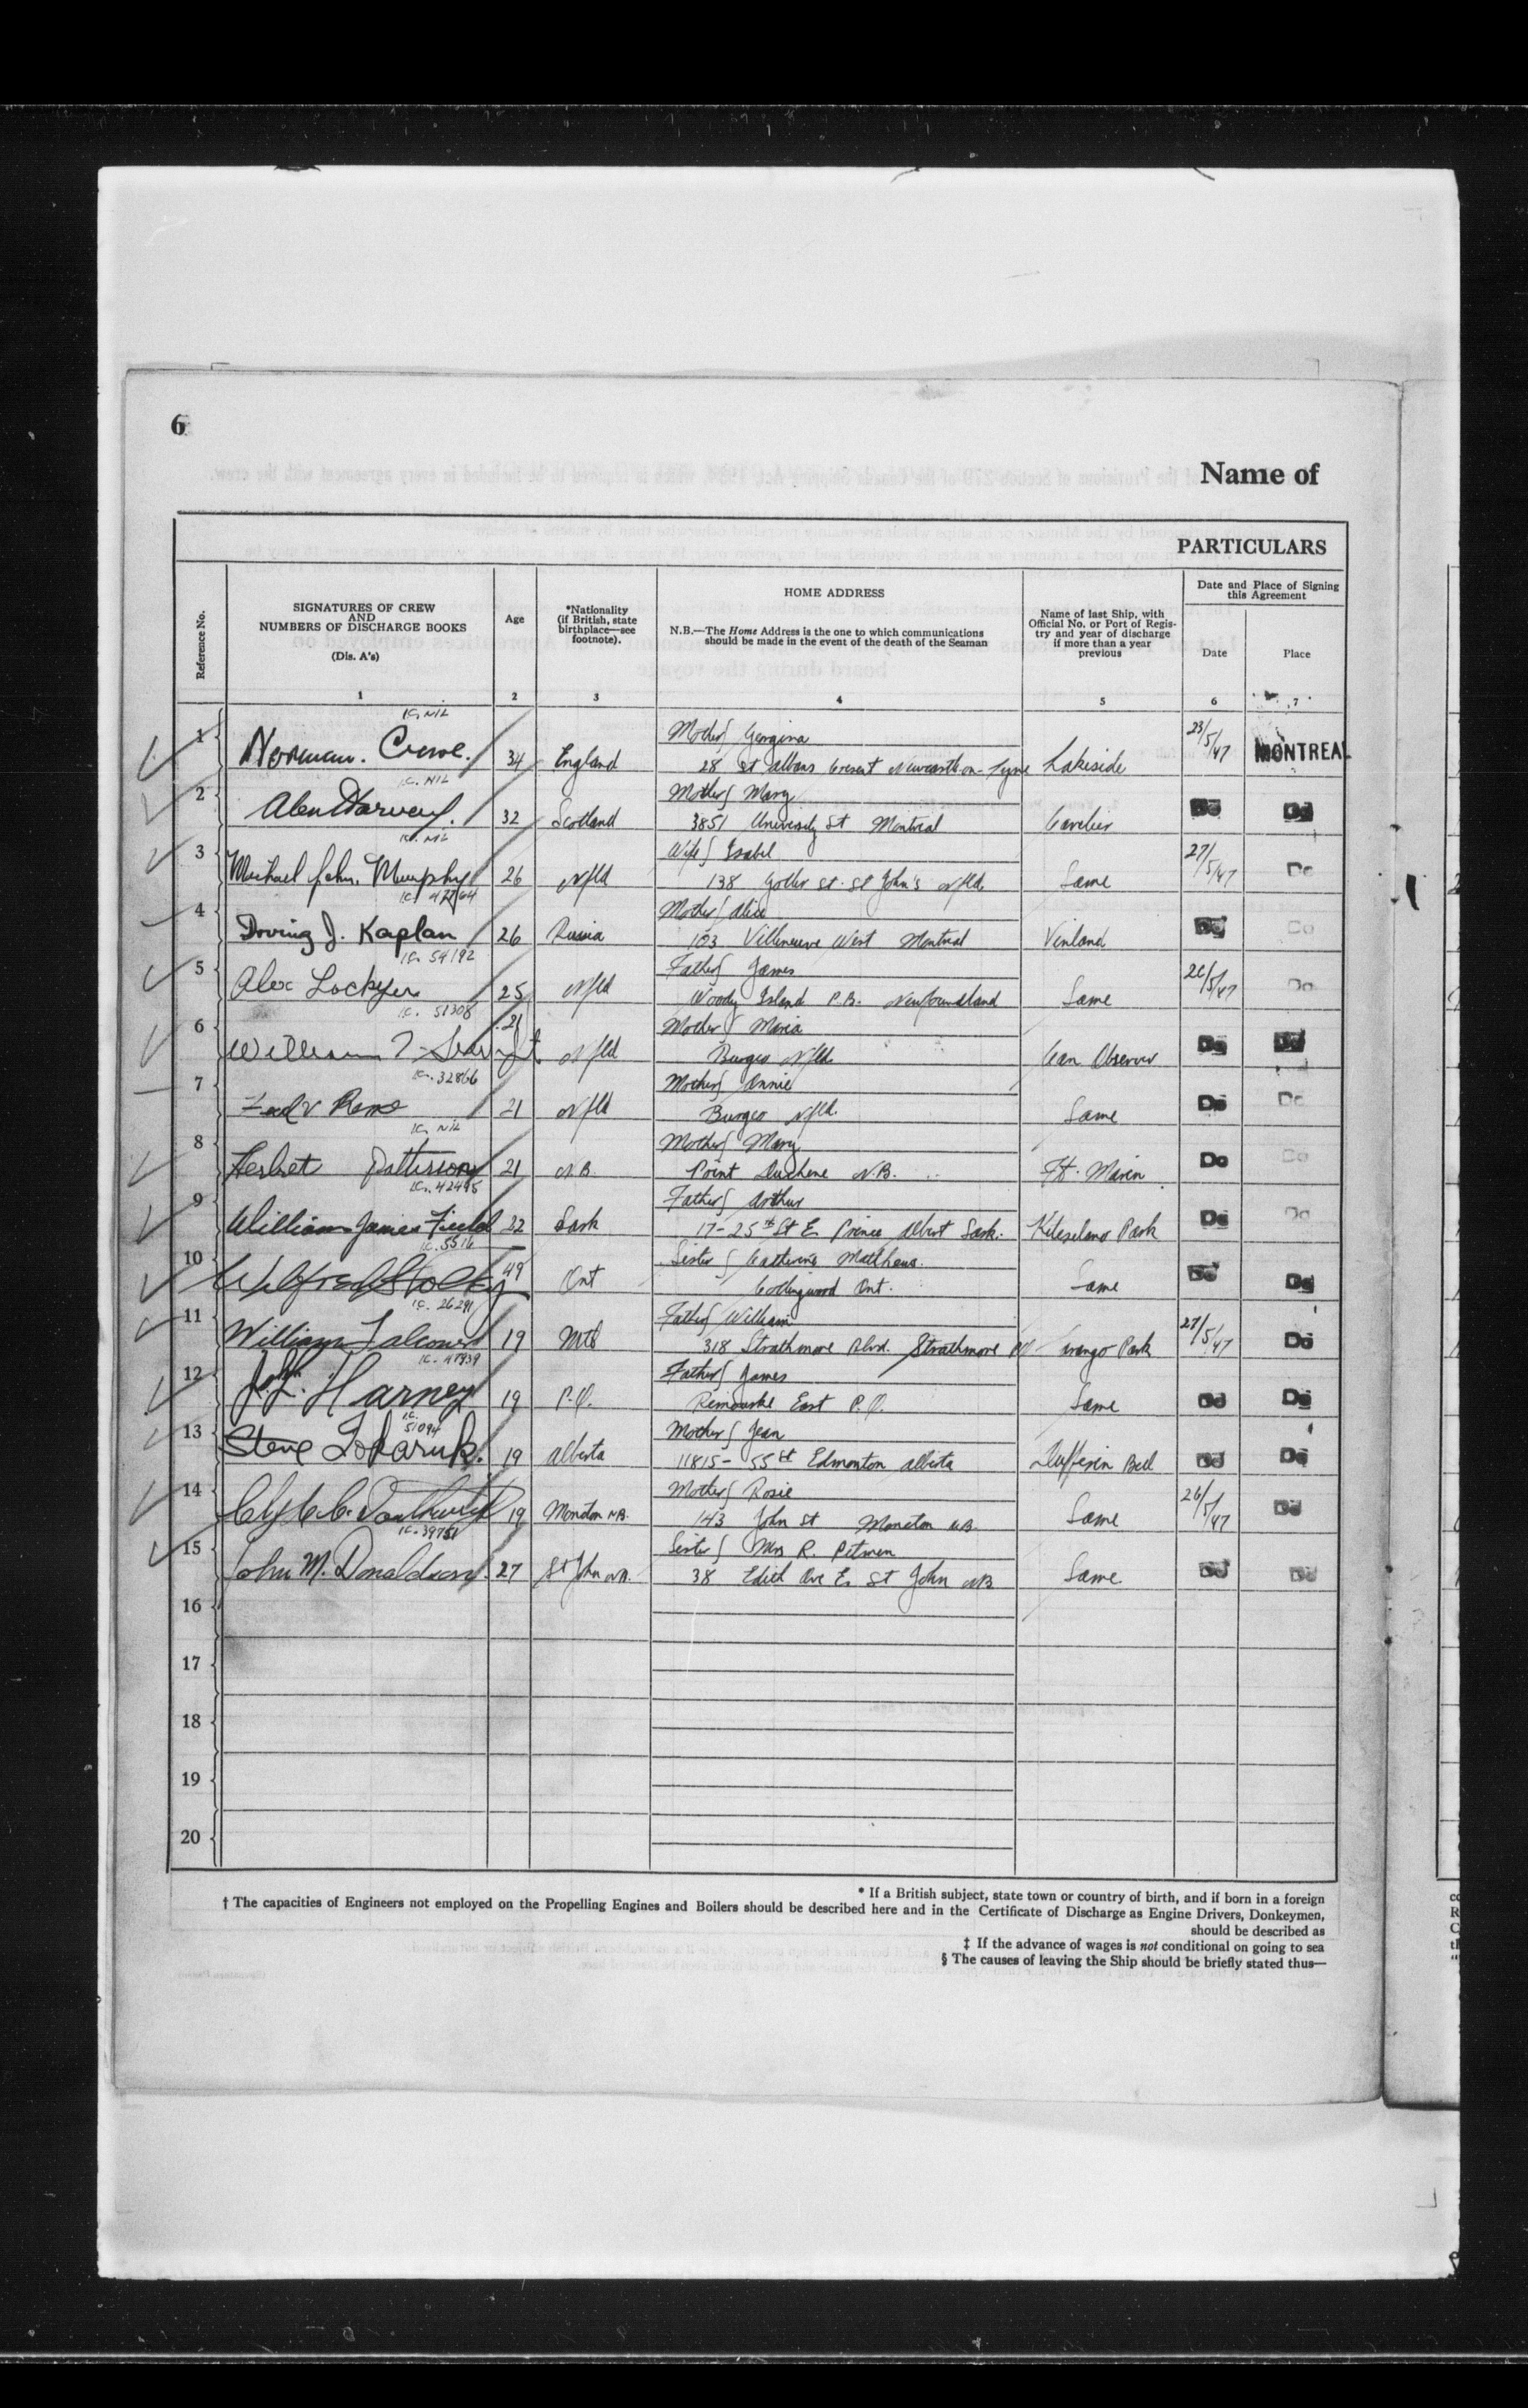 6
Name of
PARTICULARS
Reference No.
SIGNATURES OF CREW
AND
NUMBERS OF DISCHARGE BOOKS
(Dis. A's)
1
Age
2
*Nationality
(if British, state
birthplace—see
footnote).
3
HOME ADDRESS
N.B.—The Home Address is the one to which communications
should be made in the event of the death of the Seaman
4
Name of last Ship, with
Official No. or Port of Regis-
try and year of discharge
if more than a year
previous
5
Date and Place of Signing
this Agreement
Date
6
Place
7
IC. NIL
Mother Georgina
1 Norman. Crowe. 34 England 28 St Albans Cresent Newcastle-on-Tyne Lakeside 23/5/47 MONTREAL
IC. NIL
Mother Mary
2 Alen Harvey. 32 Scotland 3851 University St Montreal Cavelier Do Do
IC. NIL
Wife Isabel
3 Michael John. Murphy 26 Nfld 138 St. St John's Nfld. Same 27/5/47 Do
IC. 47764
Mother Alice
4 Irving J. Kaplan 26 Russia 103 Villeneuve West Montreal Vinland Do Do
IC. 54192
Father James
5 Alex Lockyer 25 Nfld Woody Island P.B. Newfoundland Same 26/5/47 Do
IC. 51308
Mother Maria
6 William 21 Nfld Burgeo Nfld. Can Observer Do Do
IC. 32866
Mother Annie
7 21 Nfld Burgeo Nfld. Same Do Do
IC. NIL
Mother Mary
8 Herbet Pattison 21 N.B. Point Duchene N.B. Ft. Do Do
IC. 42495
Father Arthur
9 William James Field 22 Sask 17-25th St E Prince Albert Sask. Kitsilano Park Do Do
IC. 5516
Sister Catherine Matthews.
10 Wilfred 49 Ont Collingwood Ont. Same Do Do
IC. 26291
Father William
11 William Falconer 19 Mtl 318 Strathmore Blvd. Strathmore PQ Park 27/5/47 Do
IC. 47939
Father James
12 J.L. Harney 19 P.Q. Remouske East P.Q. Same Do Do
IC.
51094
Mother Jean
13 Steve Tokaruk. 19 Alberta 11815- 55 St Edmonton Alberta Dufferin Bell Do Do
Mother Rosie
14 19 Moncton N.B. 143 John St Moncton N.B. Same 26/5/47 Do
IC. 39751
Sister Mrs R. Pitmen
15 John M. Donaldson. 27 St John N.B. 38 Edith Ave E. St John NB Same. Do Do
16
17
18
19
20
* If a British subject, state town or country of birth, and if born in a foreign
† The capacities of Engineers not employed on the Propelling Engines and Boilers should be described here and in the Certificate of Discharge as Engine Drivers, Donkeymen,
should be described as
‡ If the advance of wages is not conditional on going to sea
§ The causes of leaving the Ship should be briefly stated thus—